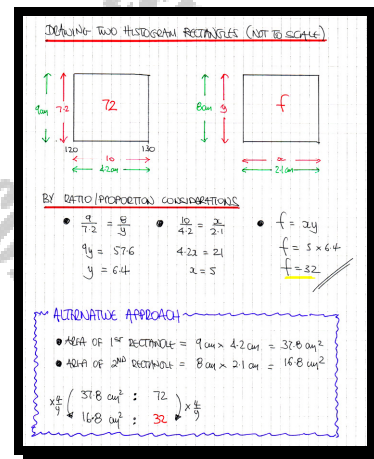 DRAWING TWO HISTOGRAM RECTANGLES (NOT TO SCALE)
9cm 7.2 72
8cm y f
120 130
10 x
4.2cm 2.1cm
BY RATIO/PROPORTION CONSIDERATIONS
• 9/7.2 = 8/y • 10/4.2 = x/2.1 • f = xy
9y = 57.6 4.2x = 21 f = 5 × 6.4
y = 6.4 x = 5 f = 32
ALTERNATIVE APPROACH
• AREA OF 1ST RECTANGLE = 9cm × 4.2cm = 37.8 cm²
• AREA OF 2ND RECTANGLE = 8cm × 2.1cm = 16.8 cm²
×4/9 ( 37.8 cm² : 72 ) ×4/9
16.8 cm² : 32